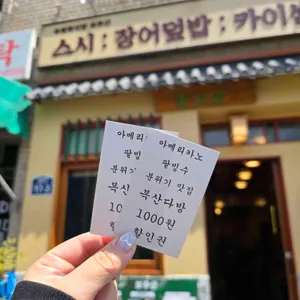 스시 ; 장어덮밥 ; 카이
탁
아메리
팥빙
분위기
복산
10
아메리카노
팥빙수
분위기 맛집
복산다방
1000원
할인권